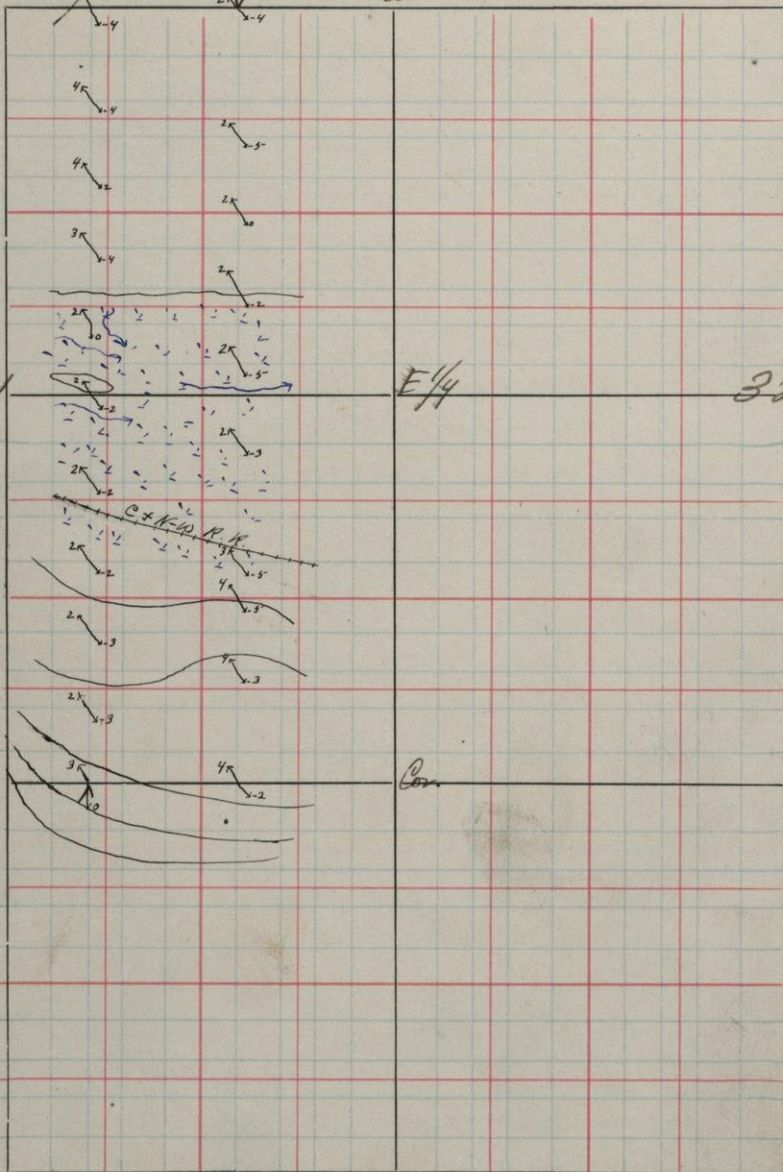 -4 2 -4
4 -4
2 -5
4 2
2 0
3 -4
2 -2
2 0
2 -5
2 -2
E 1/4
2 -3
2 -2
C + N-W R.R.
3 -5
2 -2
4 -5
2 -3
4 -3
2 +3
3 0
4 -2
Cor.